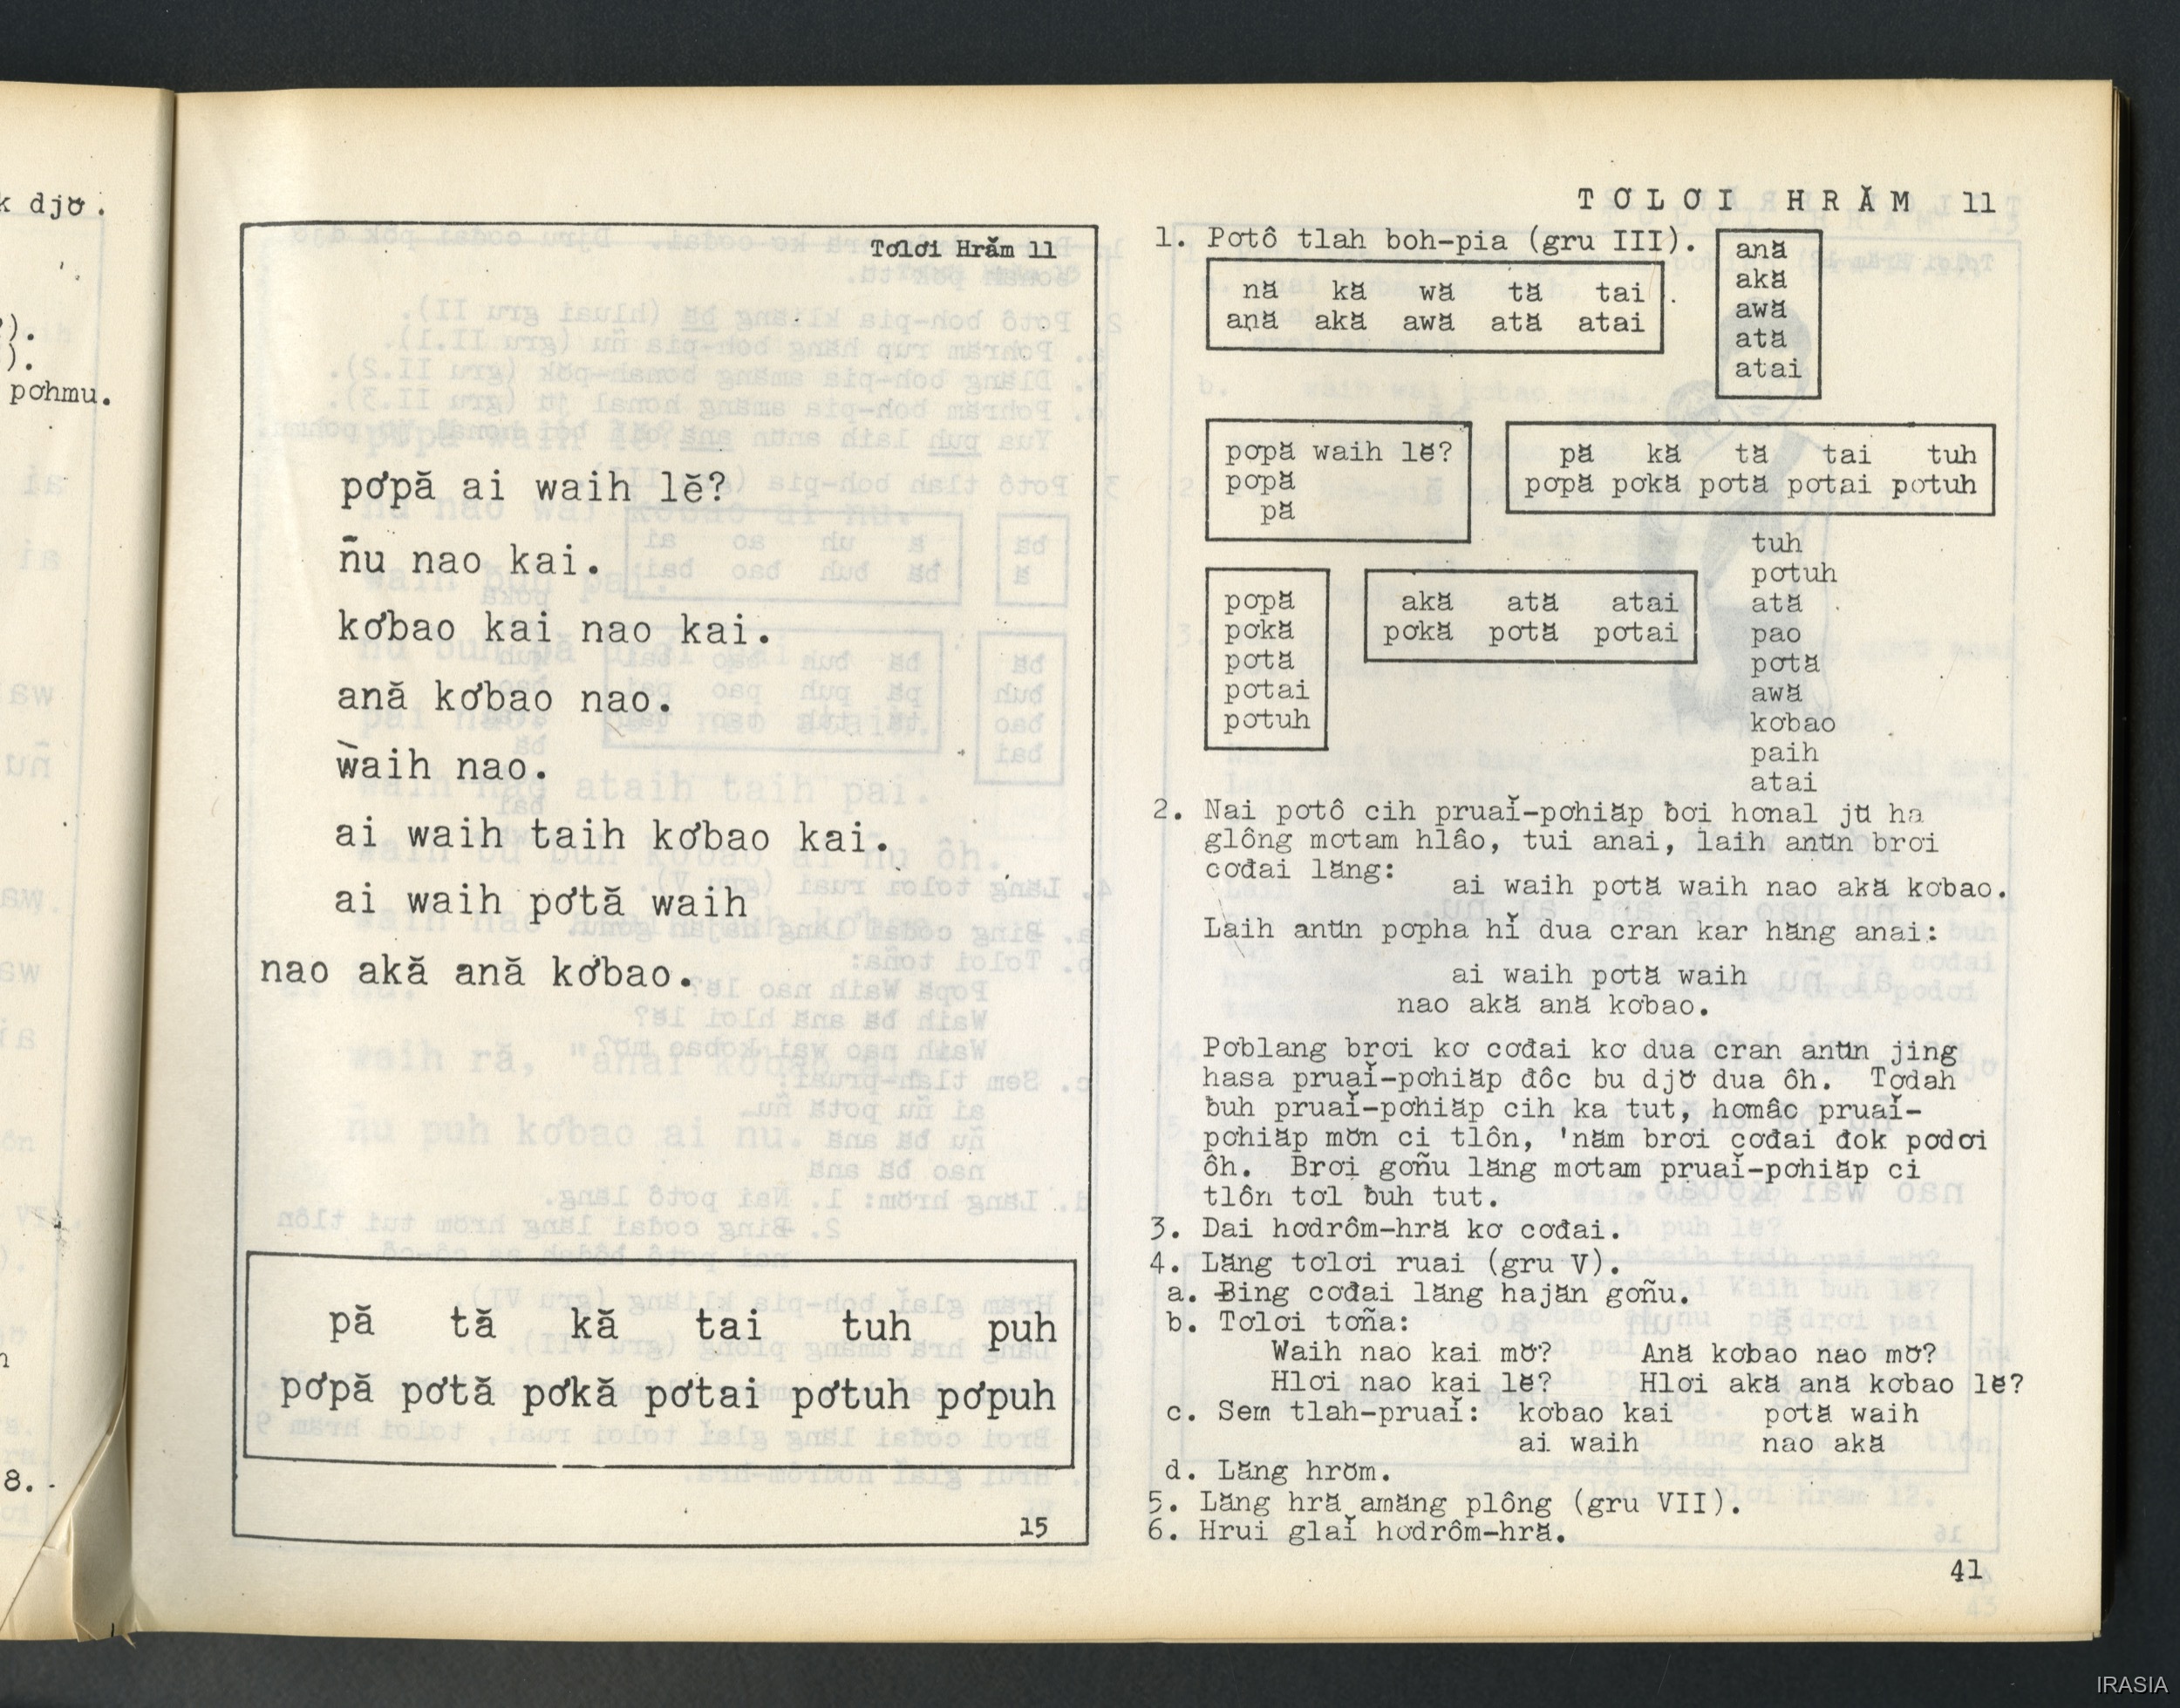 k djơ̆.
).
).
pơhmu.
8.
Tơlơi Hrăm 11
pơpă ai waih lĕ?
ñu nao kai.
kơbao kai nao kai.
ană kơbao nao.
waih nao.
ai waih taih kơbao kai.
ai waih pơtă waih
nao akă ană kơbao.
pă tă kă tai tuh puh
pơpă pơtă pơkă pơtai pơtuh pơpuh
15
TƠLƠI HRĂM 11
1. Pơtô tlah boh-pia (gru III).
nă kă wă tă tai
ană akă awă ată atai
ană
akă
awă
ată
atai
pơpă waih lĕ?
pơpă
pă
pă kă tă tai tuh
pơpă pơkă pơtă pơtai pơtuh
pơpă
pơkă
pơtă
pơtai
pơtuh
akă ată atai
pơkă pơtă pơtai
tuh
pơtuh
ată
pao
pơtă
awă
kơbao
paih
atai
2. Nai pơtô cih pruaĭ-pơhiăp ƀơi hơnal jŭ ha
glông mơtam hlâo, tui anai, laih anŭn brơi
cơđai lăng:
ai waih pơtă waih nao akă kơbao.
Laih anŭn pơpha hĭ dua cran kar hăng anai:
ai waih pơtă waih
nao akă ană kơbao.
Pơblang brơi kơ cơđai kơ dua cran anŭn jing
hasa pruaĭ-pơhiăp đôc bu djơ̆ dua ôh. Tơdah
ƀuh pruaĭ-pơhiăp cih ka tut, hơmâc pruaĭ-
pơhiăp mơ̆n ci tlôn, 'năm brơi cơđai đok pơdơi
ôh. Brơi gơñu lăng mơtam pruaĭ-pơhiăp ci
tlôn tơl ƀuh tut.
3. Dai hơdrôm-hră kơ cơđai.
4. Lăng tơlơi ruai (gru V).
a. Ƀing cơđai lăng hajăn gơñu.
b. Tơlơi tơña:
Waih nao kai mơ̆? Ană kơbao nao mơ̆?
Hlơi nao kai lĕ? Hlơi akă ană kơbao lĕ?
c. Sem tlah-pruaĭ: kơbao kai pơtă waih
ai waih nao akă
d. Lăng hrơ̆m.
5. Lăng hră amăng plông (gru VII).
6. Hrui glaĭ hơdrôm-hră.
41
IRASIA